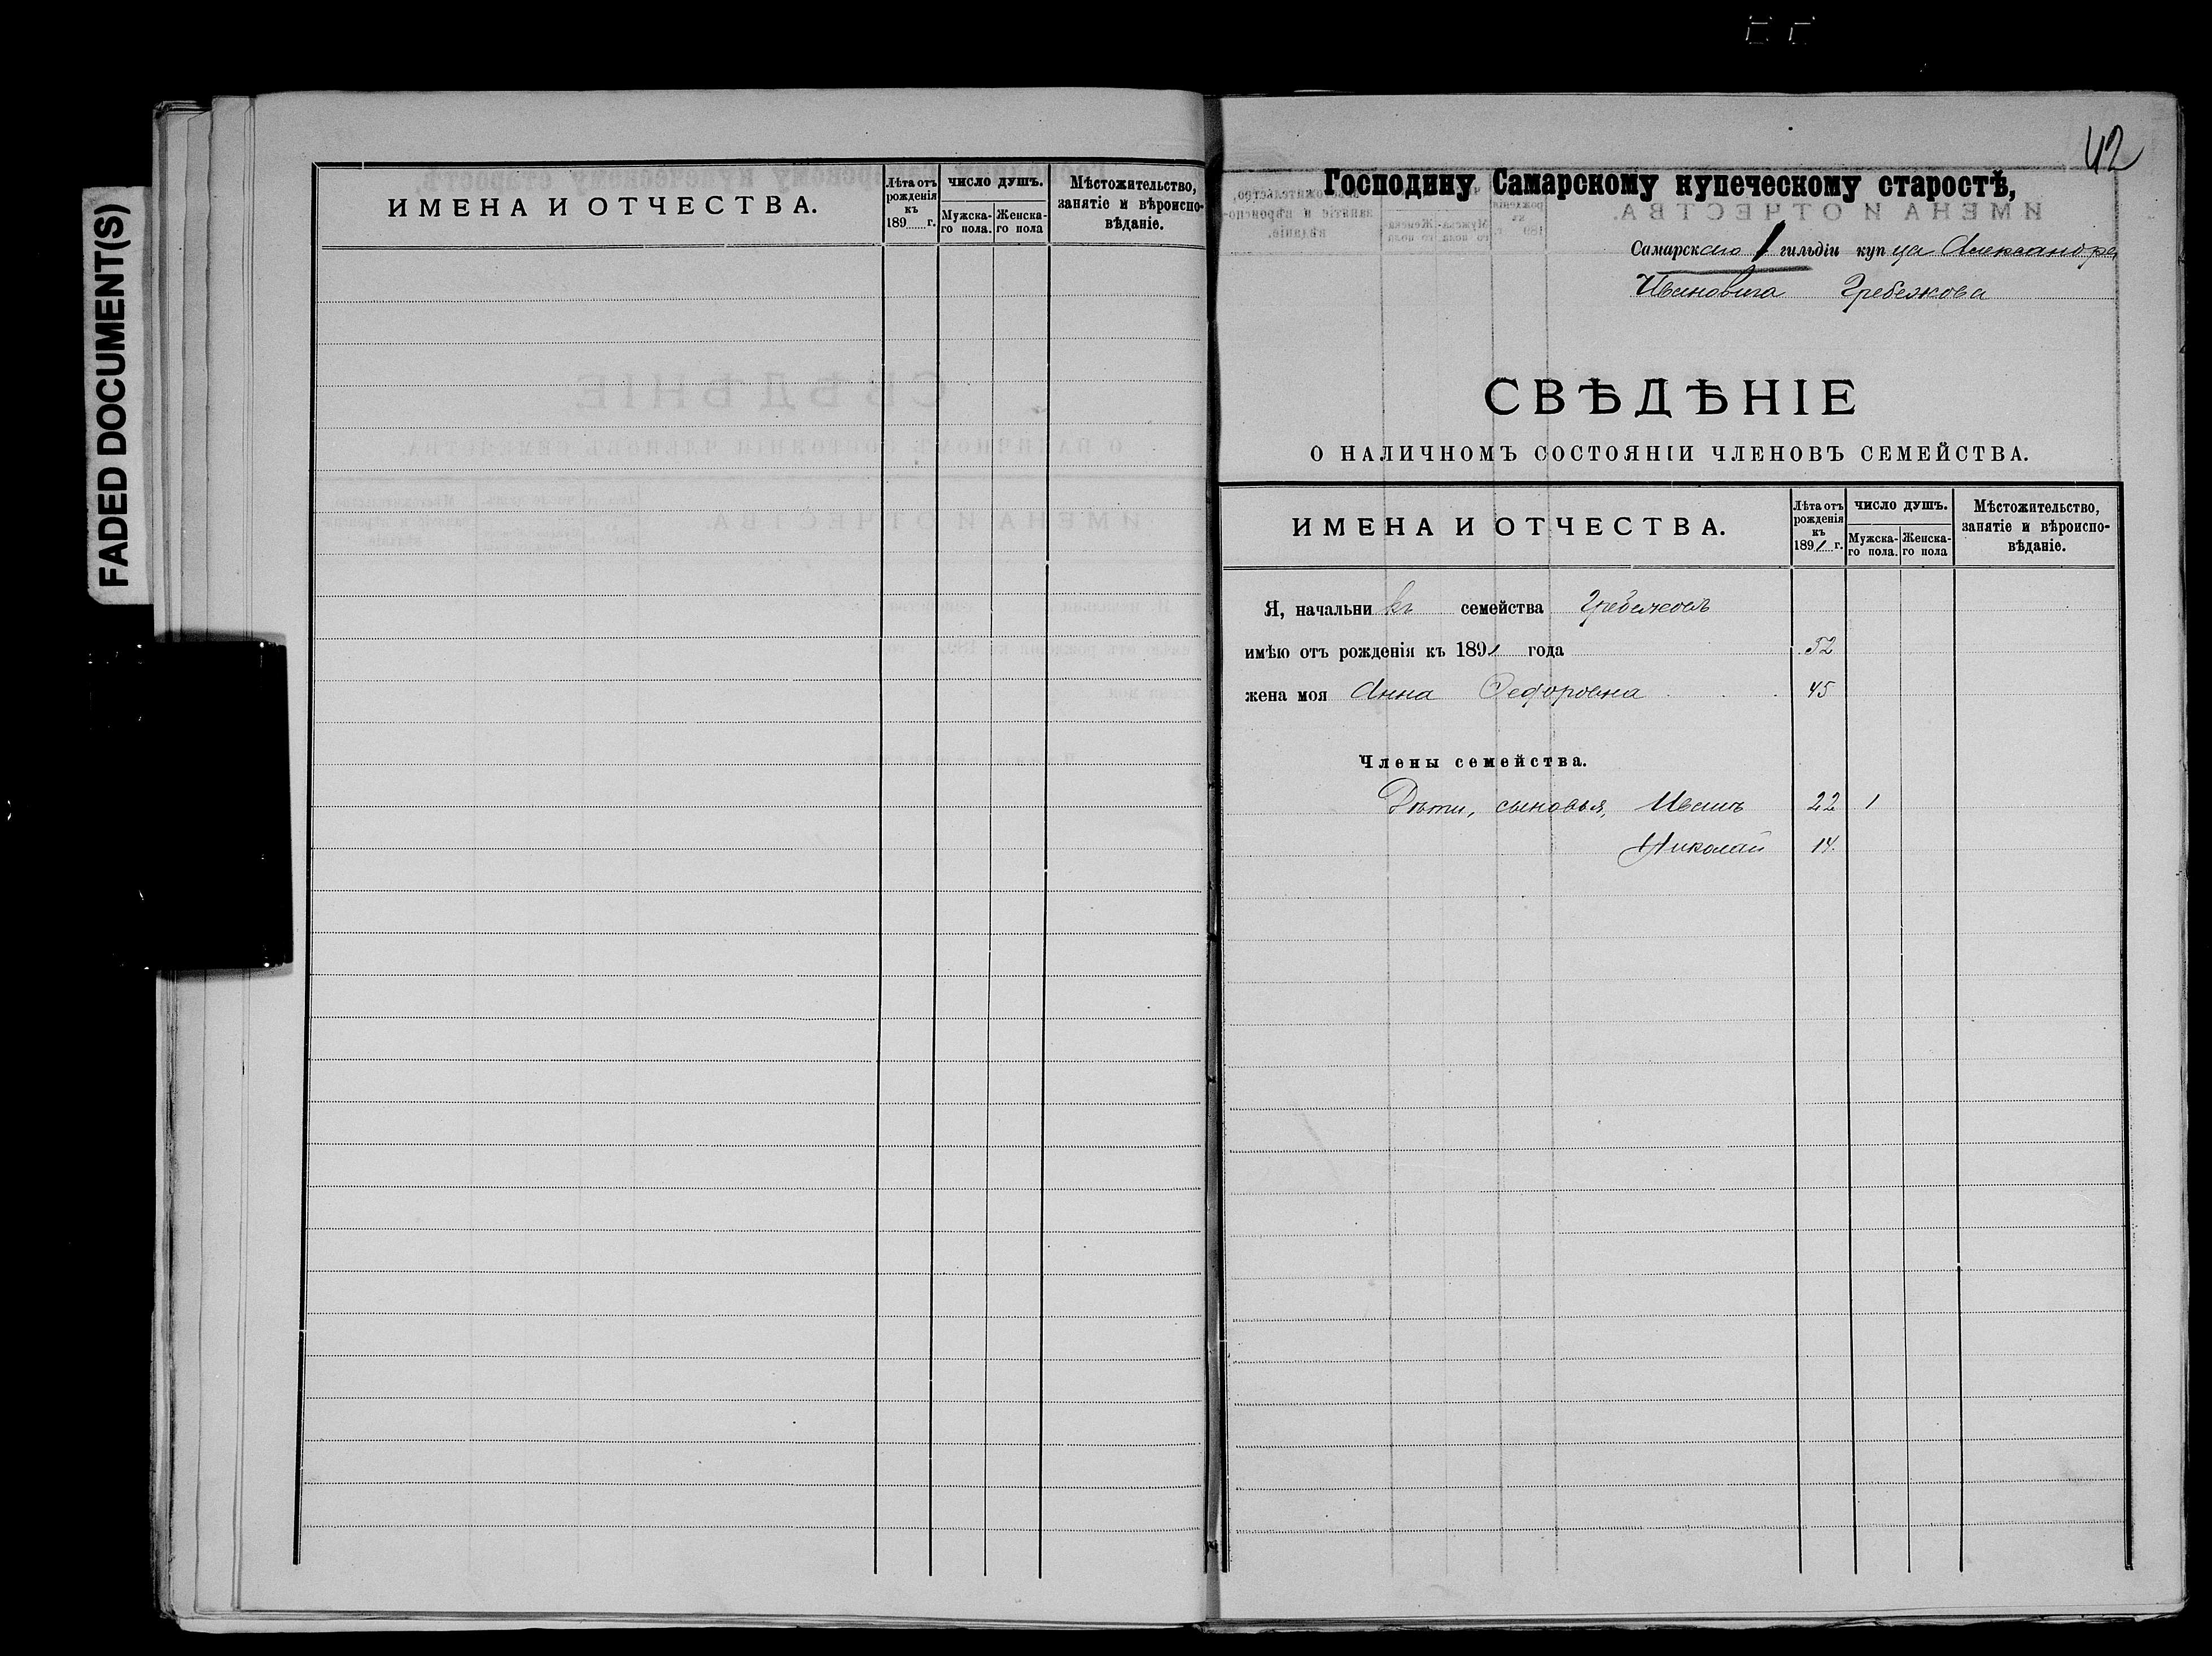 FADED DOCUMENT(S)
ИМЕНА И ОТЧЕСТВА.
Лѣта отъ рожденія къ 189 г.
ЧИСЛО ДУШЪ.
Мужска-го пола.
Женска-го пола
Мѣстожительство, занятіе и вѣроиспо-вѣданіе.
42
Господину Самарскому купеческому старостѣ,
Самарскаго 1 гильдіи купца Александра
Ивановича Гребежкова
СВѢДѢНІЕ
О НАЛИЧНОМЪ СОСТОЯНІИ ЧЛЕНОВЪ СЕМЕЙСТВА.
ИМЕНА И ОТЧЕСТВА.
Лѣта отъ рожденія къ 1891 г.
ЧИСЛО ДУШЪ.
Мужска-го пола.
Женска-го пола
Мѣстожительство, занятіе и вѣроиспо-вѣданіе.
Я, начальникъ семейства Гребежковъ
имѣю отъ рожденія къ 1891 года 52
жена моя Анна Федоровна 45
Члены семейства.
Дѣти, сыновья, Иванъ 22 1
Николай 14.